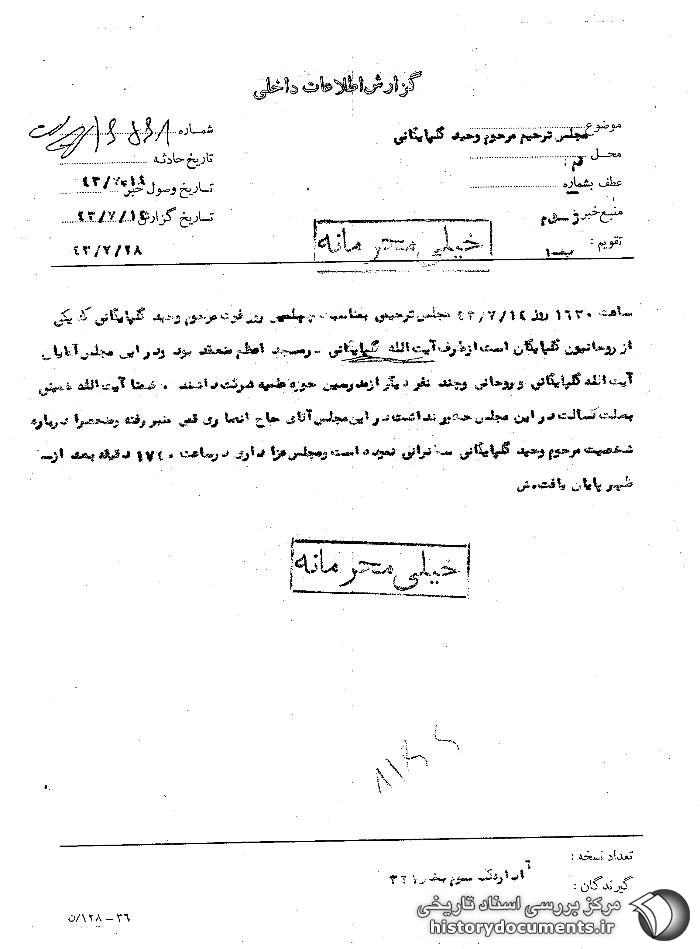 گزارش اطلاعات داخلی
موضوع مجلس ترحیم مرحوم وحید گلپایگانی
شماره
محل قم :
تاریخ حادثه
عطف بشماره
تاریخ وصول خبر ٤٣/٧/١٤
منبع خبر
تاریخ گزارش ٤٣/٧/١٤
تقویم :
٤٣/٧/٢٨
خیلی محرمانه
ساعت ١٦٣٠ روز ٤٣/٧/١٤ مجلس ترحیمی بمناسبت چهلمین روز فوت مرحوم وحید گلپایگانی که یکی
از روحانیون گلپایگان است از طرف آیت الله گلپایگانی در مسجد اعظم منعقد بود و در این مجلس آقایان
آیت الله گلپایگانی و روحانی و چند نفر دیگر از مدرسین حوزه علمیه شرکت داشتند . ضمنا آیت الله خمینی
بعلت کسالت در این مجلس حضور نداشت در این مجلس آقای حاج انصاری قمی منبر رفته و منحصرا درباره
شخصیت مرحوم وحید گلپایگانی سخنرانی نموده است و مجلس عزاداری در ساعت ١٧٤٠ دقیقه بعد از
ظهر پایان یافت.ش
خیلی محرمانه
تعداد نسخه :
گیرندگان : اداره کل سوم بخش ٣٢١
٣٦ – ١٢٨/٥
مرکز بررسی اسناد تاریخی
historydocuments.ir